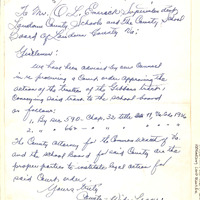 To Mr. O. L. Emerick Superintendent
Loudoun County Schools and The County School
Board of Loudoun County Va:
Gentlemen:
We have been advised by our Counsel
in re procuring a Court order approving the
action of the Trustees of the
conveying said land to the school board
as follows:
1, By Sec. 590 - Chap. 32, title
2, " 660 - "
The County Attorney for the Commonwealth of Va.
and the school board for said County are the
proper parties to institute legal action for
said Court order.
Yours truly,
County Wide League